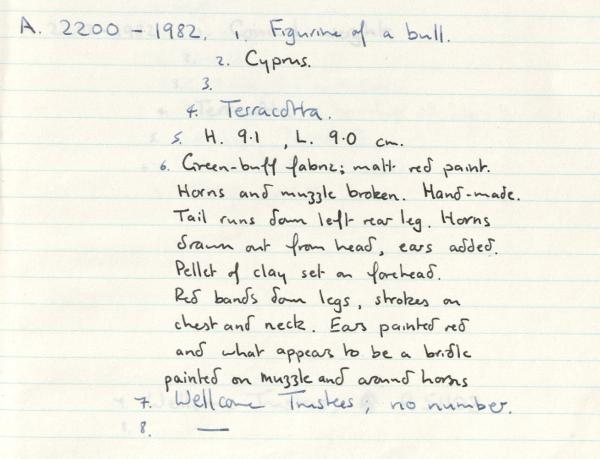 A. 2200 - 1982. 1. Figurine of a bull.
2. Cyprus.
3.
4. Terracotta.
5. H. 9.1 , L. 9.0 cm.
6. Green-buff fabric; matt red paint.
Horns and muzzle broken. Hand-made.
Tail runs down left rear leg. Horns
drawn out from head, ears added.
Pellet of clay set on forehead.
Red bands down legs, strokes on
chest and neck. Ears painted red
and what appears to be a bridle
painted on muzzle and around horns
7. Wellcome Trustees, no number.
8. —